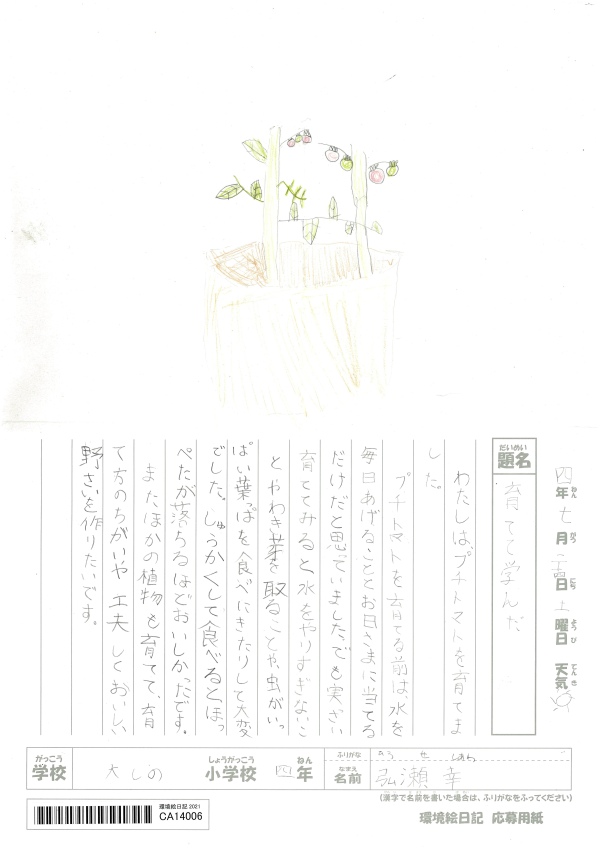 四年七月 日 土曜日 天気
ねん がつ にち ようび てんき
だいめい
題名
育てて学んだ
わたしは、プチトマトを育てま
した。
プチトマトを育てる前は、水を
毎日あげることとお日さまに当てる
だけだと思っていました。でも実さい
育ててみると水をやりすぎないこ
とやわき芽を取ることや、虫がいっ
ぱい葉っぱを食べにきたりして大変
でした。しゅうかくして食べるとほっ
ぺたが落ちるほどおいしかったです。
またほかの植物も育てて、育
て方のちがいや工夫しくおいしい
野さいを作りたいです。
がっこう
学校
大しの
しょうがっこう
小学校
四年
ねん
ふりがな
なまえ
名前
弘瀬 幸
(漢字で名前を書いた場合は、ふりがなをふってください)
環境絵日記 2021
CA14006
環境絵日記 応募用紙